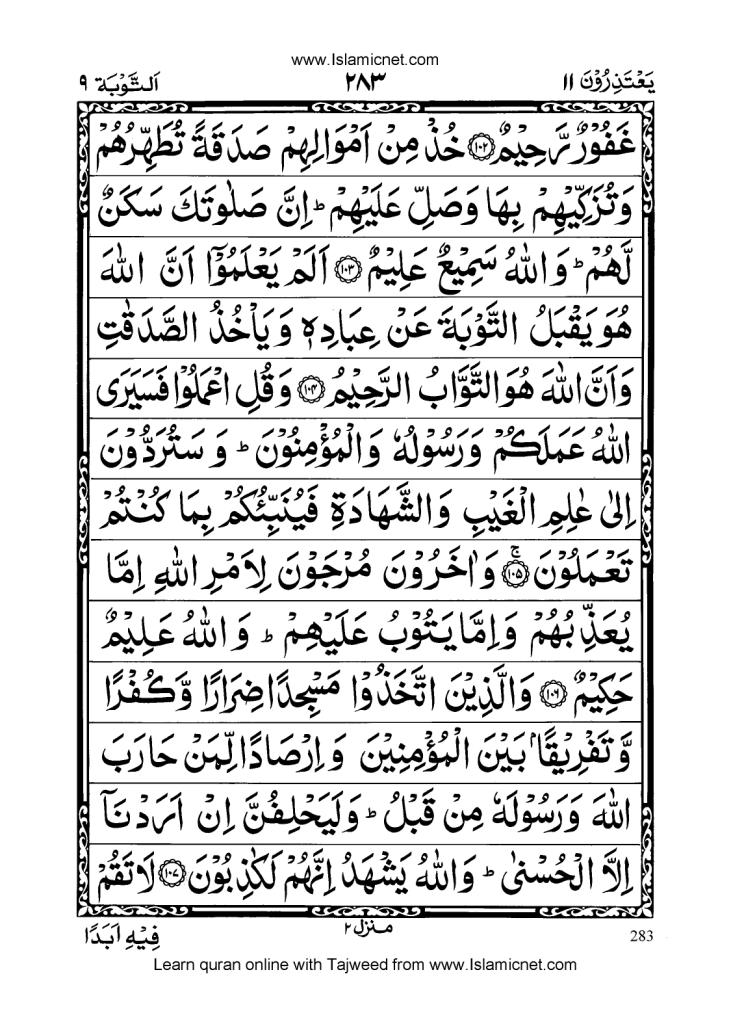 www.Islamicnet.com
يَعْتَذِرُوْنَ ١١ ٢٨٣ اَلتَّوْبَة ٩
غَفُوْرٌ رَّحِيْمٌ ﴿١٠٢﴾ خُذْ مِنْ اَمْوَالِهِمْ صَدَقَةً تُطَهِّرُهُمْ
وَتُزَكِّيْهِمْ بِهَا وَصَلِّ عَلَيْهِمْ ؕ اِنَّ صَلٰوتَكَ سَكَنٌ
لَّهُمْ ؕ وَاللّٰهُ سَمِيْعٌ عَلِيْمٌ ﴿١٠٣﴾ اَلَمْ يَعْلَمُوْۤا اَنَّ اللّٰهَ
هُوَ يَقْبَلُ التَّوْبَةَ عَنْ عِبَادِهٖ وَيَاْخُذُ الصَّدَقٰتِ
وَاَنَّ اللّٰهَ هُوَ التَّوَّابُ الرَّحِيْمُ ﴿١٠٤﴾ وَقُلِ اعْمَلُوْا فَسَيَرَى
اللّٰهُ عَمَلَكُمْ وَرَسُوْلُهٗ وَالْمُؤْمِنُوْنَ ؕ وَسَتُرَدُّوْنَ
اِلٰى عٰلِمِ الْغَيْبِ وَالشَّهَادَةِ فَيُنَبِّئُكُمْ بِمَا كُنْتُمْ
تَعْمَلُوْنَ ۚ﴿١٠٥﴾ وَاٰخَرُوْنَ مُرْجَوْنَ لِاَمْرِ اللّٰهِ اِمَّا
يُعَذِّبُهُمْ وَاِمَّا يَتُوْبُ عَلَيْهِمْ ؕ وَاللّٰهُ عَلِيْمٌ
حَكِيْمٌ ﴿١٠٦﴾ وَالَّذِيْنَ اتَّخَذُوْا مَسْجِدًا ضِرَارًا وَّكُفْرًا
وَّتَفْرِيْقًۢا بَيْنَ الْمُؤْمِنِيْنَ وَاِرْصَادًا لِّمَنْ حَارَبَ
اللّٰهَ وَرَسُوْلَهٗ مِنْ قَبْلُ ؕ وَلَيَحْلِفُنَّ اِنْ اَرَدْنَاۤ
اِلَّا الْحُسْنٰى ؕ وَاللّٰهُ يَشْهَدُ اِنَّهُمْ لَكٰذِبُوْنَ ﴿١٠٧﴾ لَا تَقُمْ
283 منزل ٢ فِيْهِ اَبَدًا
Learn quran online with Tajweed from www.Islamicnet.com